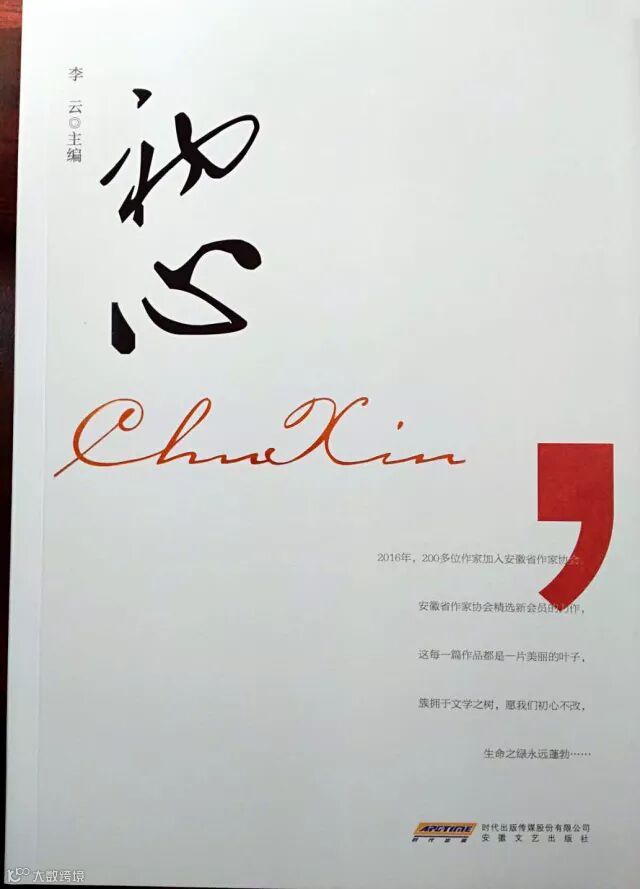 李 云◎主编
初心
ChuXin
2016年，200多位作家加入安徽省作家协会，
安徽省作家协会精选新会员的力作，
这每一篇作品都是一片美丽的叶子，
簇拥于文学之树，愿我们初心不改，
生命之绿永远蓬勃……
ARCTIME
时代出版
时代出版传媒股份有限公司
安徽文艺出版社
大数跨境